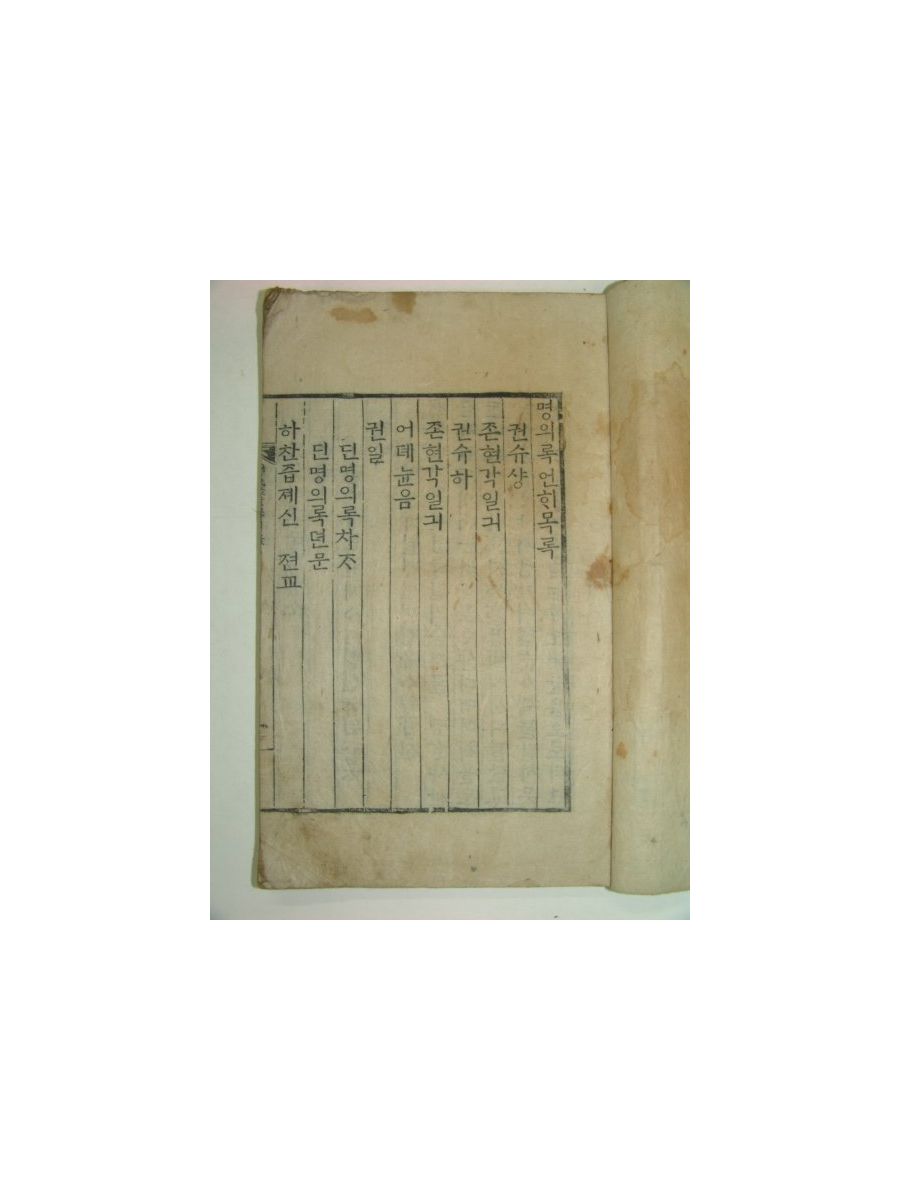 명의록언ᄒᆡ목록
권슈샹
존현각일긔
권슈하
존현각일긔
어졔뉸음
권일
딘명의록차ᄌᆞ
딘명의록뎐문
하찬즙졔신 젼교